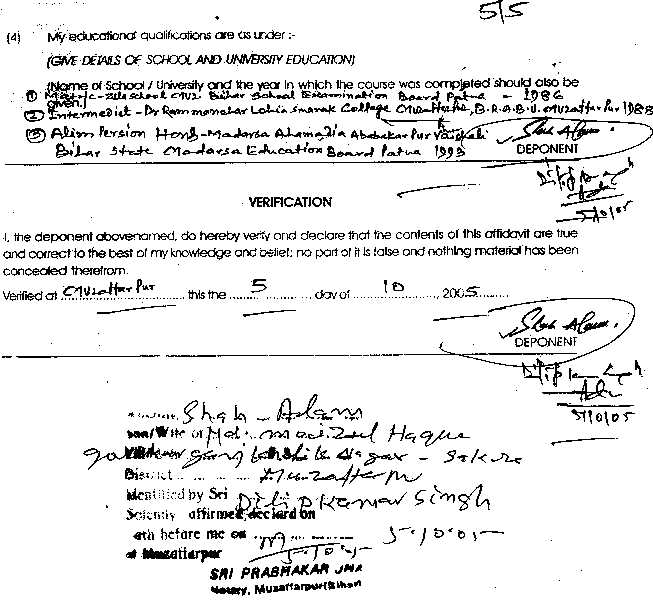 5/5
(4) My educational qualifications are as under :-
(GIVE DETAILS OF SCHOOL AND UNIVERSITY EDUCATION)
(Name of School / University and the year in which the course was completed should also be
given.)
① Matric - Zila School Muz. Bihar School Examination Board Patna - 1986
② Intermediet - Dr Rammanohar Lohia Smarak College Muzaffarpur, B.R.A.B.U. Muzaffarpur 1988
③ Alim Persion Hons - Madarsa Ahamadia Ababakarpur Vaishali
Bihar State Madarsa Education Board Patna 1993
Shah Alam
DEPONENT
5/10/05
VERIFICATION
I, the deponent abovenamed, do hereby verify and declare that the contents of this affidavit are true
and correct to the best of my knowledge and belief; no part of it is false and nothing material has been
concealed therefrom.
Verified at Muzaffarpur this the 5 day of 10, 2005
Shah Alam.
DEPONENT
5/10/05
Shah Alam
son/Wife of Md. Haque
District Muzaffarpur
Identified by Sri Dilip Kumar Singh
Solemnly affirmed declard on
oath before me on 5.10.05
at Muzaffarpur 5.10.05
SRI PRABHAKAR JHA
Notary, Muzaffarpur (Bihar)